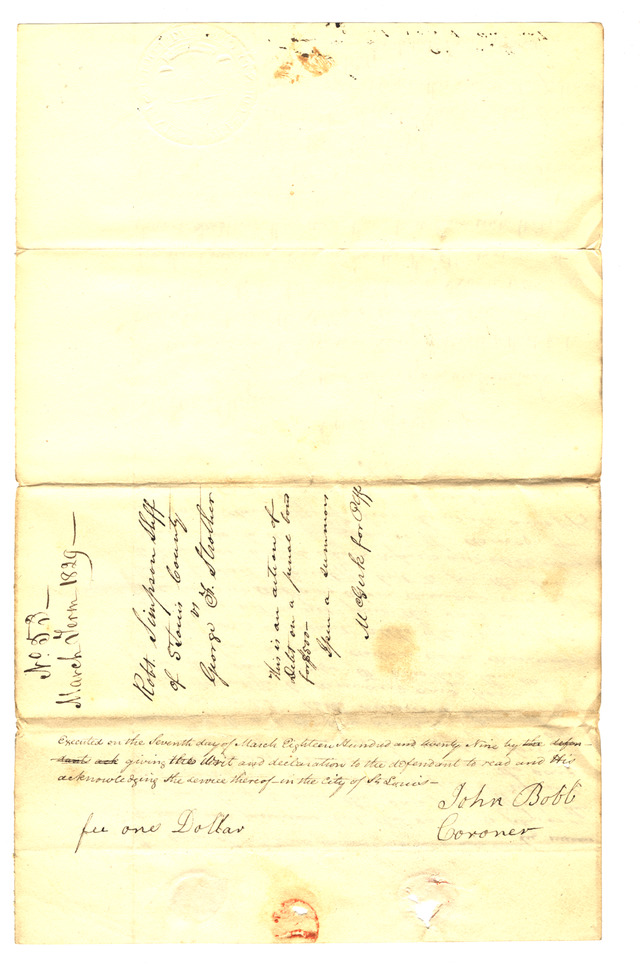 No. 53—
March Term 1829—
Robt Simpson Shff
of St Louis County
vs
George F. Strother
This is an action of
Debt on a penal bond
for $500—
Issue a summons
McGirk for Plff
Executed on the Seventh day of March Eighteen Hundred and twenty Nine by the defen-
dants ack giving this Writ and declaration to the defendant to read and His
acknowledging the service thereof—in the City of St Louis—
John Bobb
Coroner
fee one Dollar